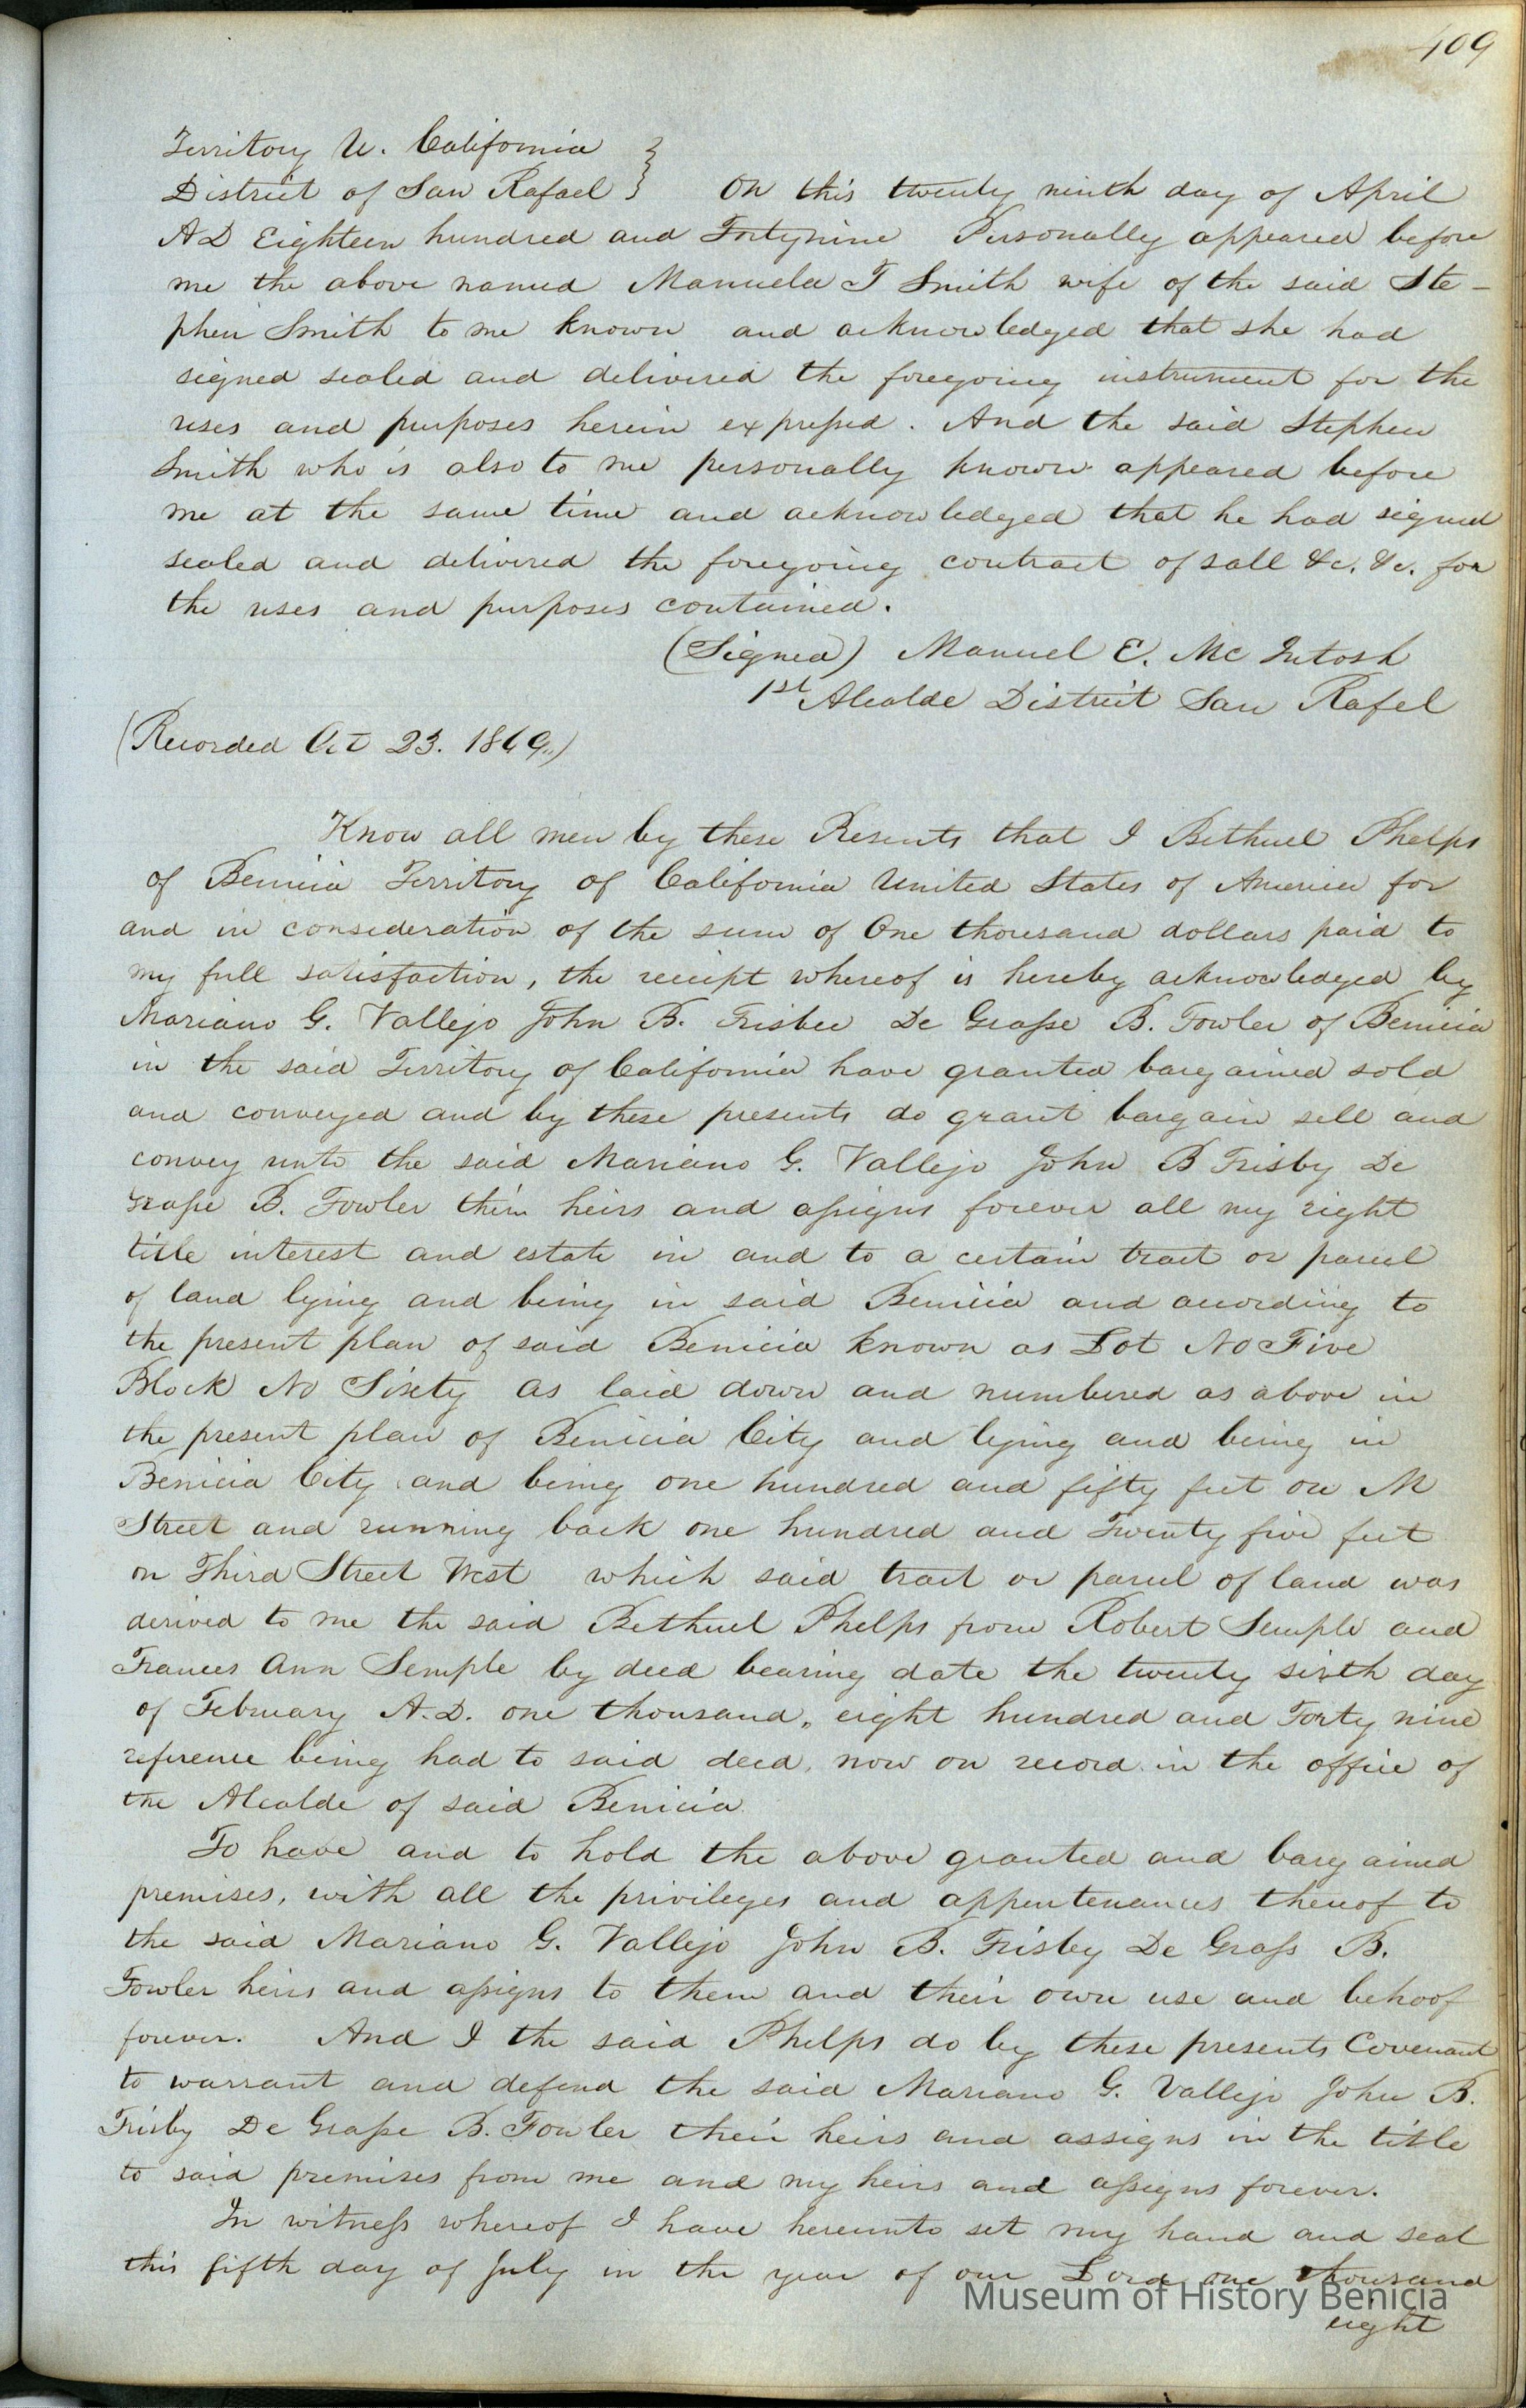 409
Territory U. California }
District of San Rafael } On this twenty ninth day of April
AD Eighteen hundred and Fortynine Personally appeared before
me the above named Manuela T Smith wife of the said Ste-
phen Smith to me known and acknowledged that she had
signed sealed and delivered the foregoing instrument for the
uses and purposes herein expressed. And the said Stephen
Smith who is also to me personally known appeared before
me at the same time and acknowledged that he had signed
sealed and delivered the foregoing contract of sall &c. &c. for
the uses and purposes contained.
(Signed) Manuel E. Mc Intosh
1st Alcalde District San Rafel
(Recorded Oct 23. 1849.)
Know all men by these Presents that I Bethuel Phelps
of Benicia Territory of California United States of America for
and in consideration of the sum of One thousand dollars paid to
my full satisfaction, the receipt whereof is hereby acknowledged by
Mariano G. Vallejo John B. Frisbee De Grasse B. Fowler of Benicia
in the said Territory of California have granted bargained sold
and conveyed and by these presents do grant bargain sell and
convey unto the said Mariano G. Vallejo John B Frisby De
Grasse B. Fowler their heirs and assigns forever all my right
title interest and estate in and to a certain tract or parcel
of land lying and being in said Benicia and according to
the present plan of said Benicia known as Lot No Five
Block No Sixty as laid down and numbered as above in
the present plan of Benicia City and lying and being in
Benicia City and being one hundred and fifty feet on M
Street and running back one hundred and Twenty five feet
on Third Street West which said tract or parcel of land was
derived to me the said Bethuel Phelps from Robert Semple and
Frances Ann Semple by deed bearing date the twenty sixth day
of February A.D. one thousand, eight hundred and Forty nine
reference being had to said deed, now on record in the office of
the Alcalde of said Benicia
To have and to hold the above granted and bargained
premises, with all the privileges and appurtenances thereof to
the said Mariano G. Vallejo John B. Frisby De Grass B.
Fowler heirs and assigns to them and their own use and behoof
forever. And I the said Phelps do by these presents Covenant
to warrant and defend the said Mariano G. Vallejo John B.
Frisby De Grasse B. Fowler their heirs and assigns in the title
to said premises from me and my heirs and assigns forever.
In witness whereof I have hereunto set my hand and seal
this fifth day of July in the year of our Lord one thousand
Museum of History Benicia
eight